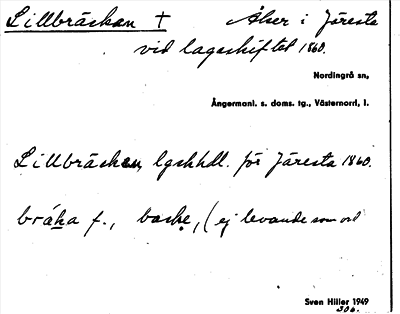 Lillbräskan † Åker i Järesta
vid lagaskiftet 1860.
Nordingrå sn,
Ångermanl. s. doms. tg., Västernorrl. l.
Lillbräskan, lgskhdl. för Järesta 1860.
bråka f., (ej levande som ord
Sven Hiller 1949
306.